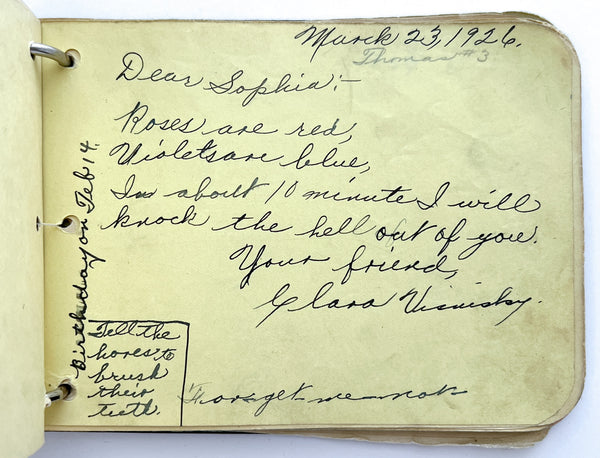 March 23, 1926.
Thomas #3
Dear Sophia:-
Roses are red,
Violets are blue,
In about 10 minute I will
knock the hell out of you.
Your friend,
Clara Visnisky.
Birthday on Feb 14.
Tell the
hores to
brush
their
teeth.
Forget-me-not